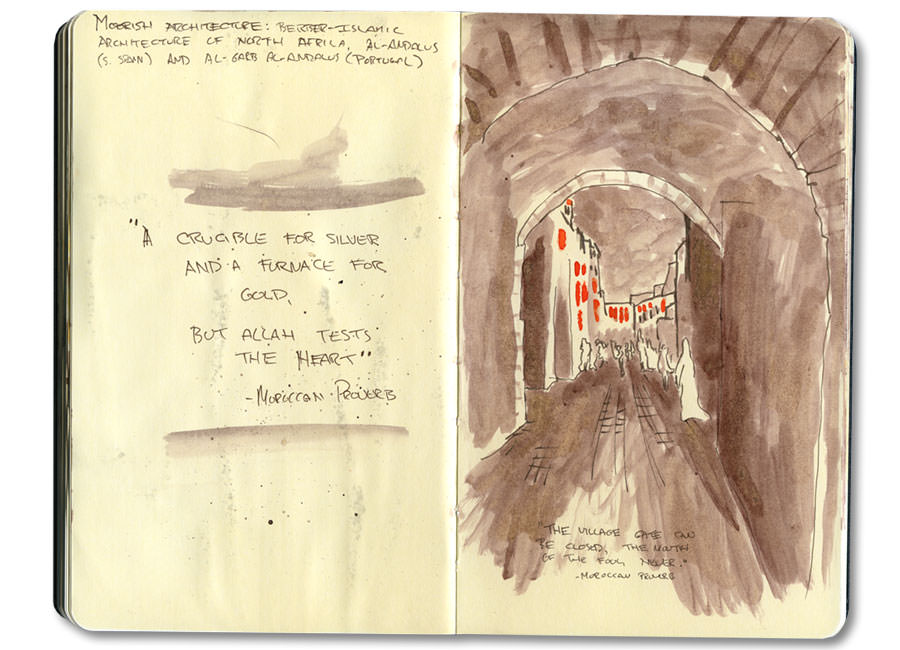 MOORISH ARCHITECTURE: BERBER-ISLAMIC
ARCHITECTURE OF NORTH AFRICA, AL-ANDALUS
(S. SPAIN) AND AL-GARB AL-ANDALUS (PORTUGAL)
"A CRUCIBLE FOR SILVER
AND A FURNACE FOR
GOLD,
BUT ALLAH TESTS
THE HEART"
-MOROCCAN PROVERB
"THE VILLAGE GATE CAN
BE CLOSED, THE MOUTH
OF THE FOOL NEVER."
-MOROCCAN PROVERB